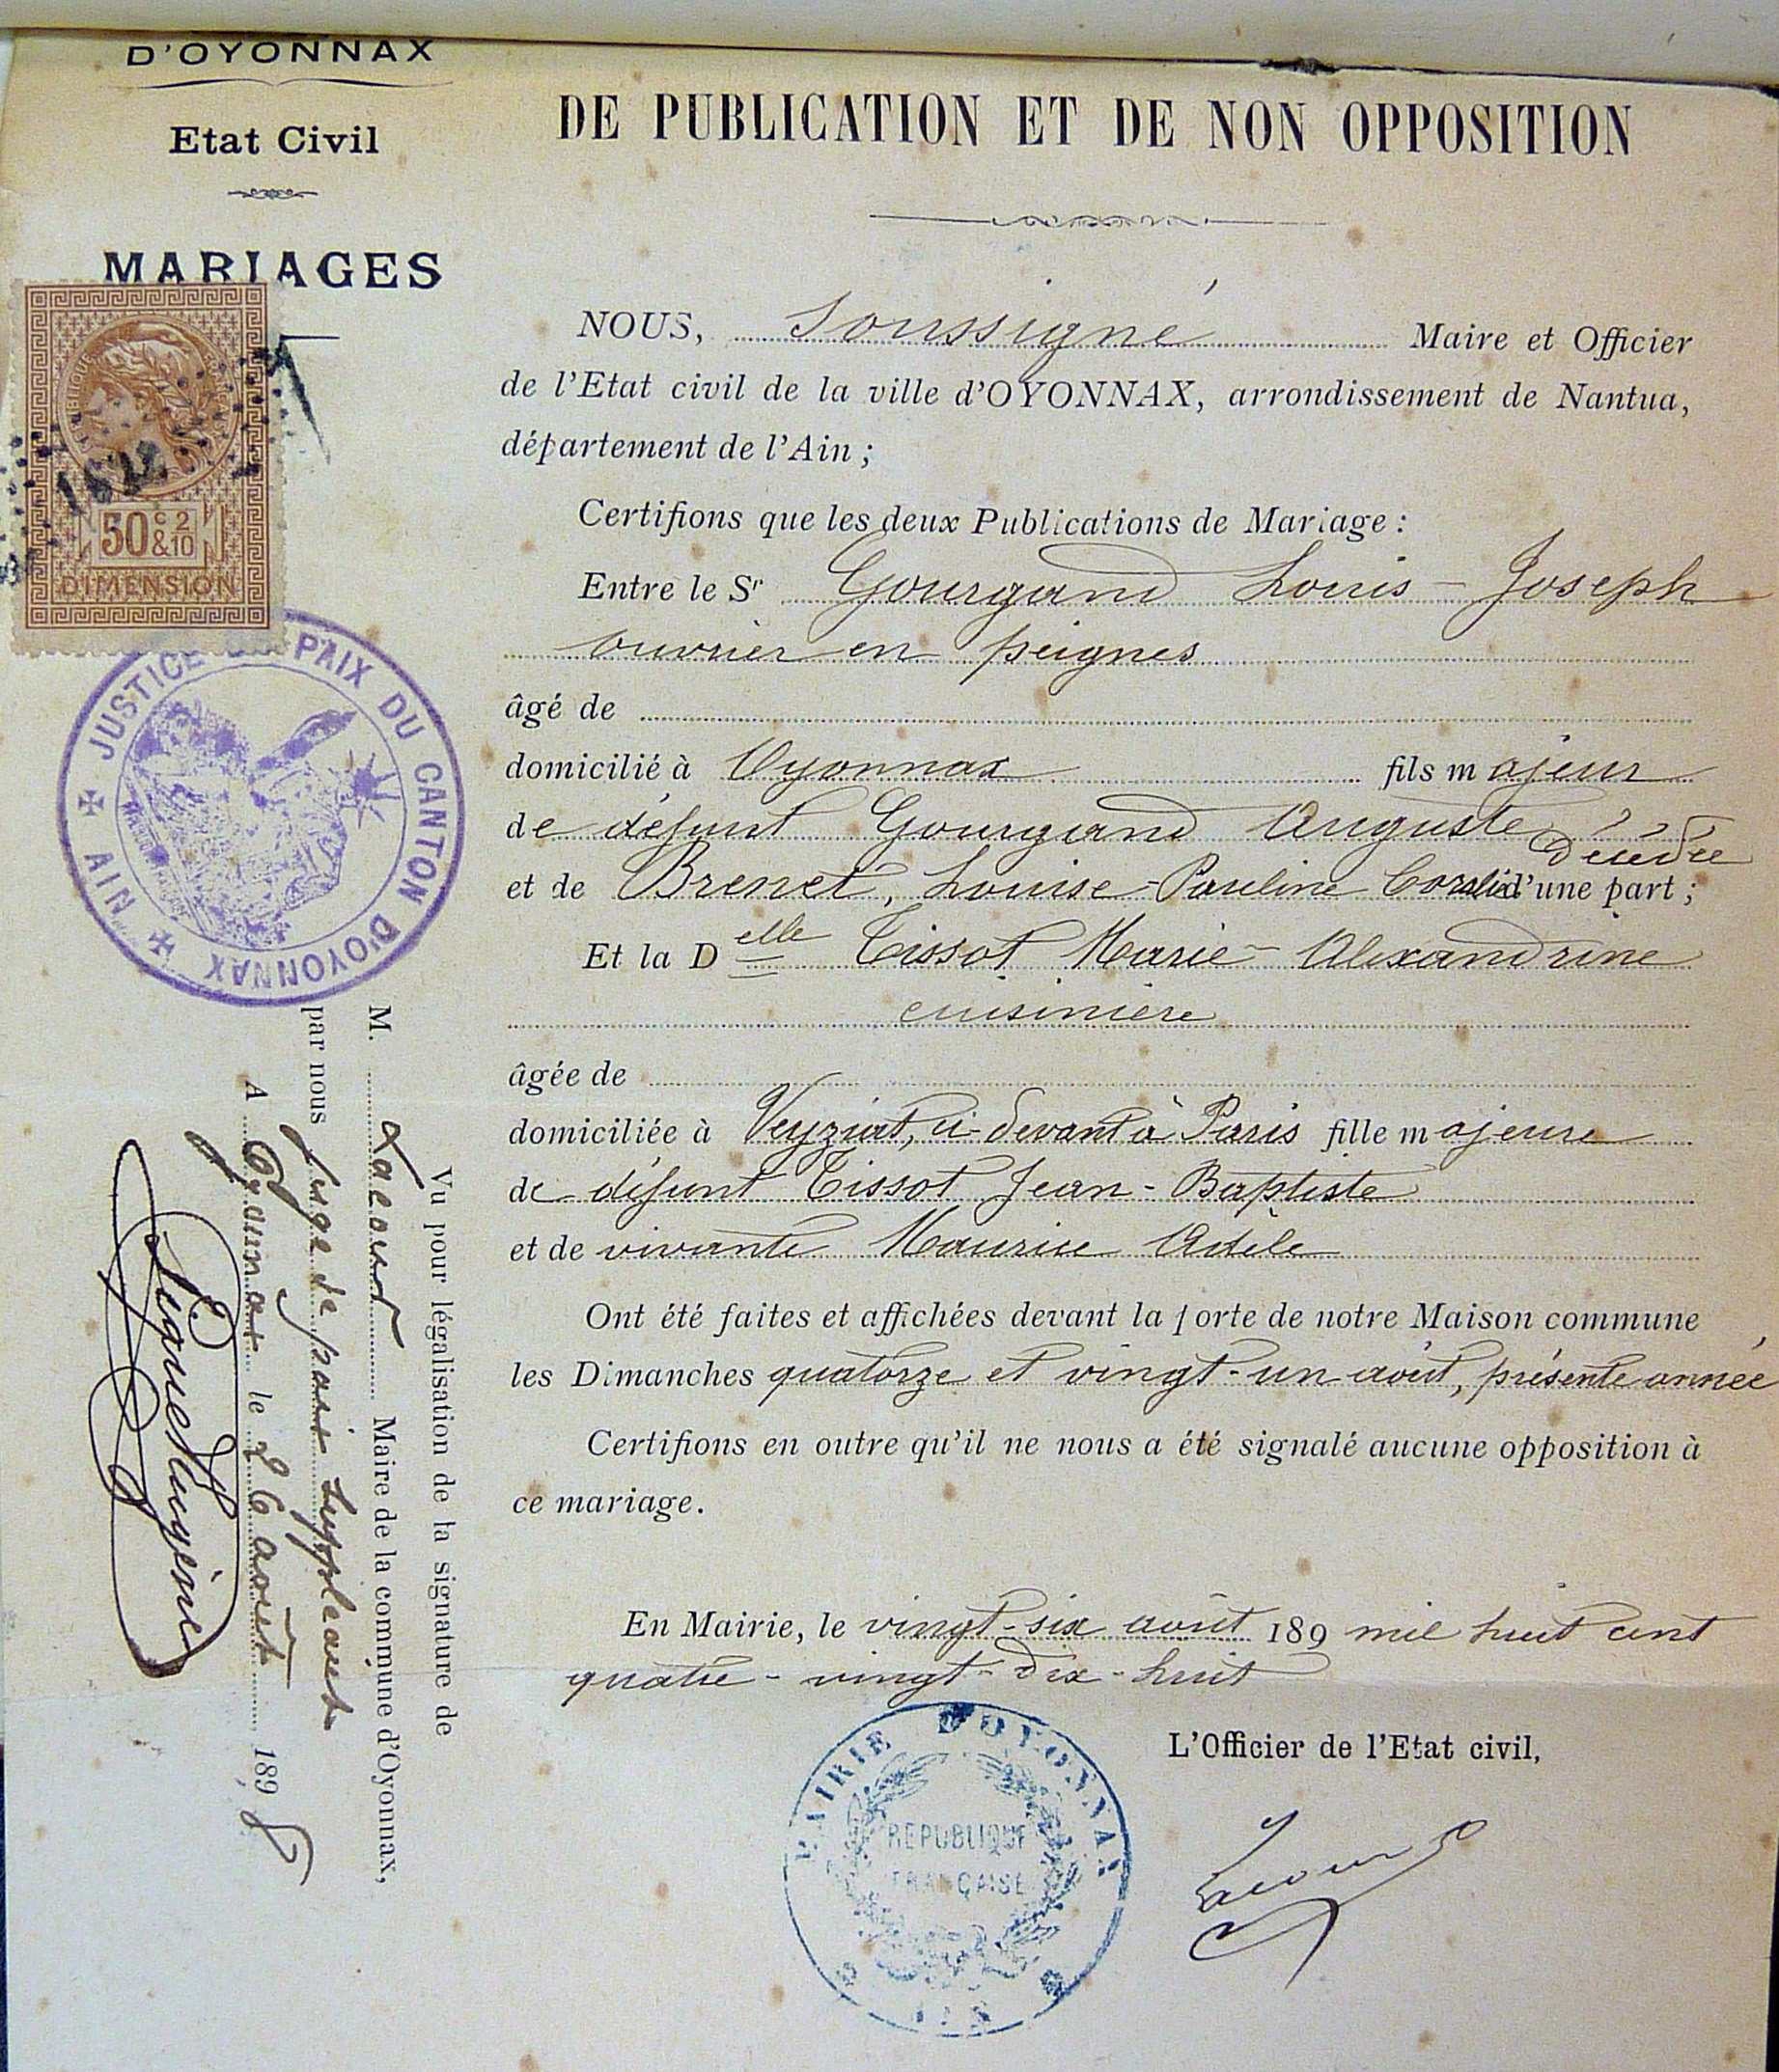 D'OYONNAX
Etat Civil
MARIAGES
DE PUBLICATION ET DE NON OPPOSITION
NOUS, Soussigné Maire et Officier
de l'Etat civil de la ville d'OYONNAX, arrondissement de Nantua,
département de l'Ain ;
Certifions que les deux Publications de Mariage :
Entre le Sr Gourgand Louis-Joseph
ouvrier en peignes
âgé de
domicilié à Oyonnax fils majeur
de défunt Gourgand Auguste
décédée
et de Brenet, Louise-Pauline Coralie d'une part ;
Et la Delle Tissot Marie-Alexandrine
cuisinière
âgée de
domiciliée à Veyziat, ci-devant à Paris fille majeure
de défunt Tissot Jean-Baptiste
et de vivante Maurice Adèle
Ont été faites et affichées devant la porte de notre Maison commune
les Dimanches quatorze et vingt-un août, présente année
Certifions en outre qu'il ne nous a été signalé aucune opposition à
ce mariage.
En Mairie, le vingt-six août 189 mil huit cent
quatre-vingt-dix-huit
L'Officier de l'Etat civil,
Lacour
MAIRIE D'OYONNAX
REPUBLIQUE
FRANÇAISE
AIN
50c 2
&10
DIMENSION
JUSTICE DE PAIX DU CANTON D'OYONNAX
AIN
Vu pour légalisation de la signature de
M. Lacour Maire de la commune d'Oyonnax,
par nous juge de paix suppléant
A Oyonnax le 26 août 1898